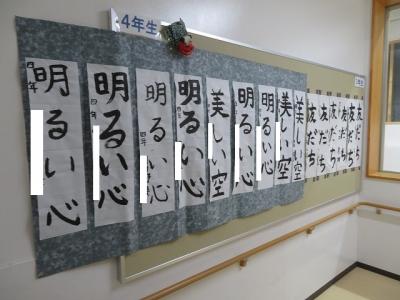 4年生
四年
明るい心
四年
明るい心
四年
明るい心
明るい心
美しい空
明るい心
明るい心
美しい空
美しい空
友だち
友だち
友だち
友だち
友だち